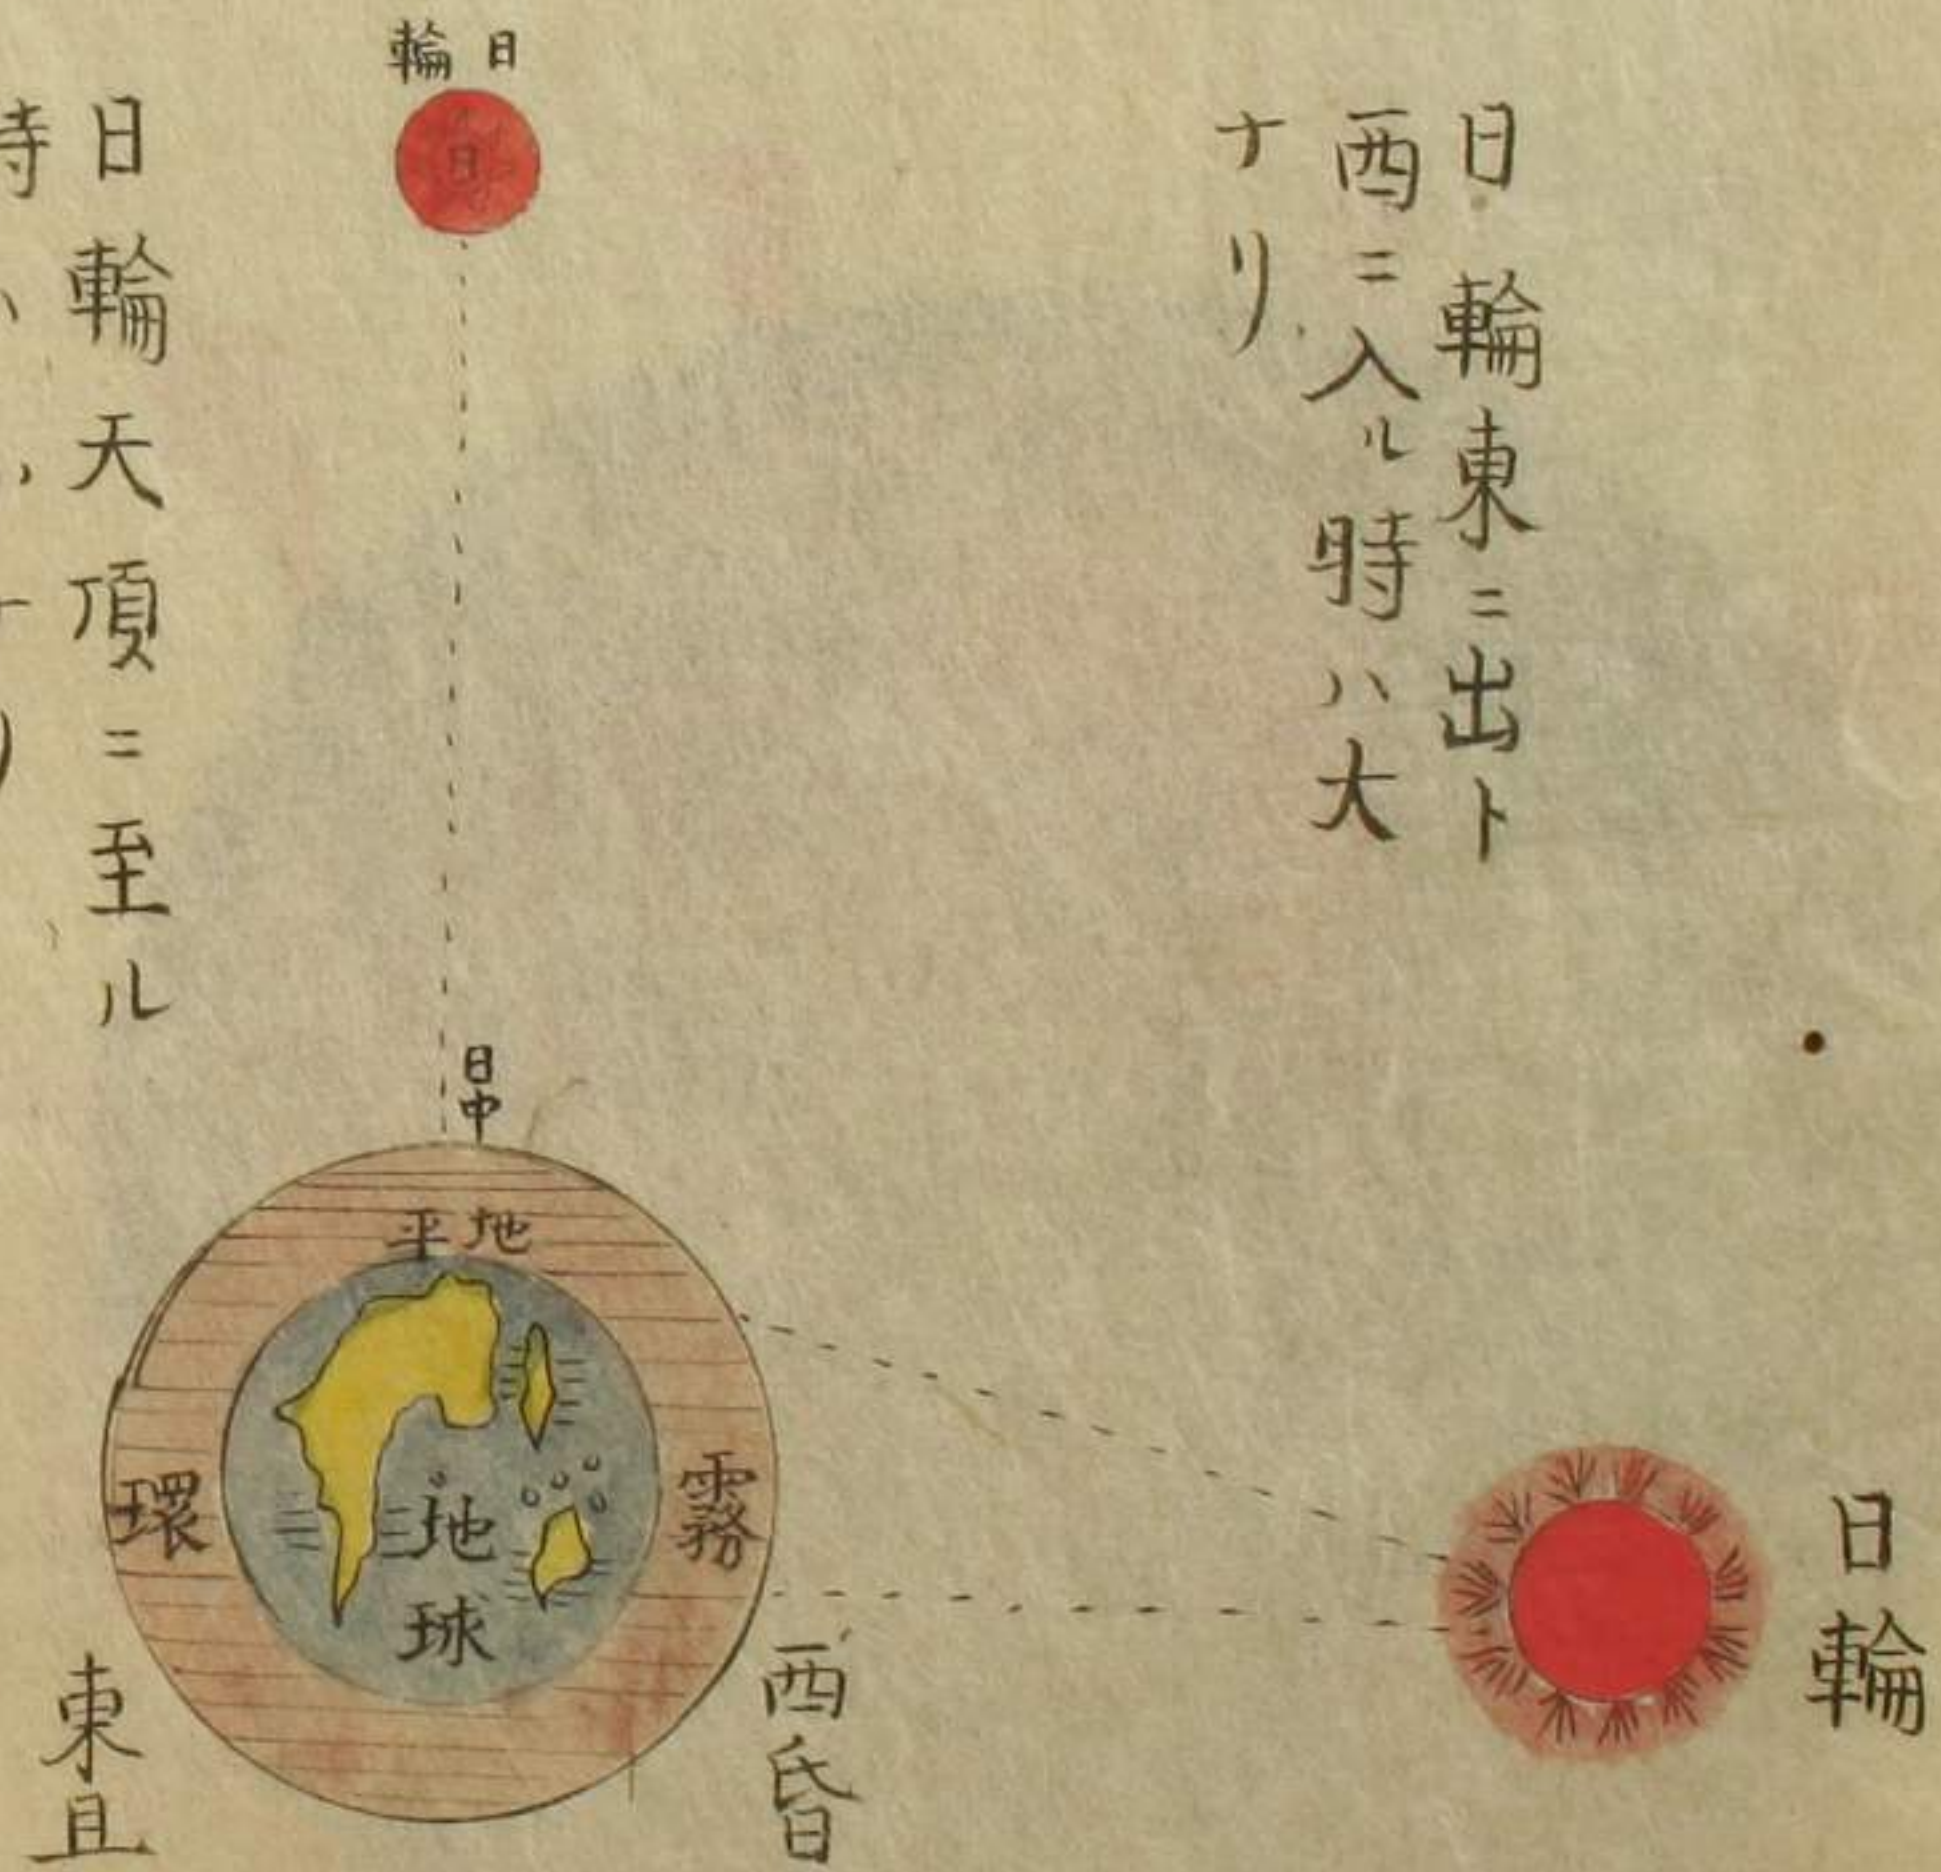 日輪東ニ出ト
西ニ入ル時ハ大
ナリ
日輪
日輪
日輪天頂ニ至ル
時ハ
日中
地平
霧環
地球
西昏
東旦